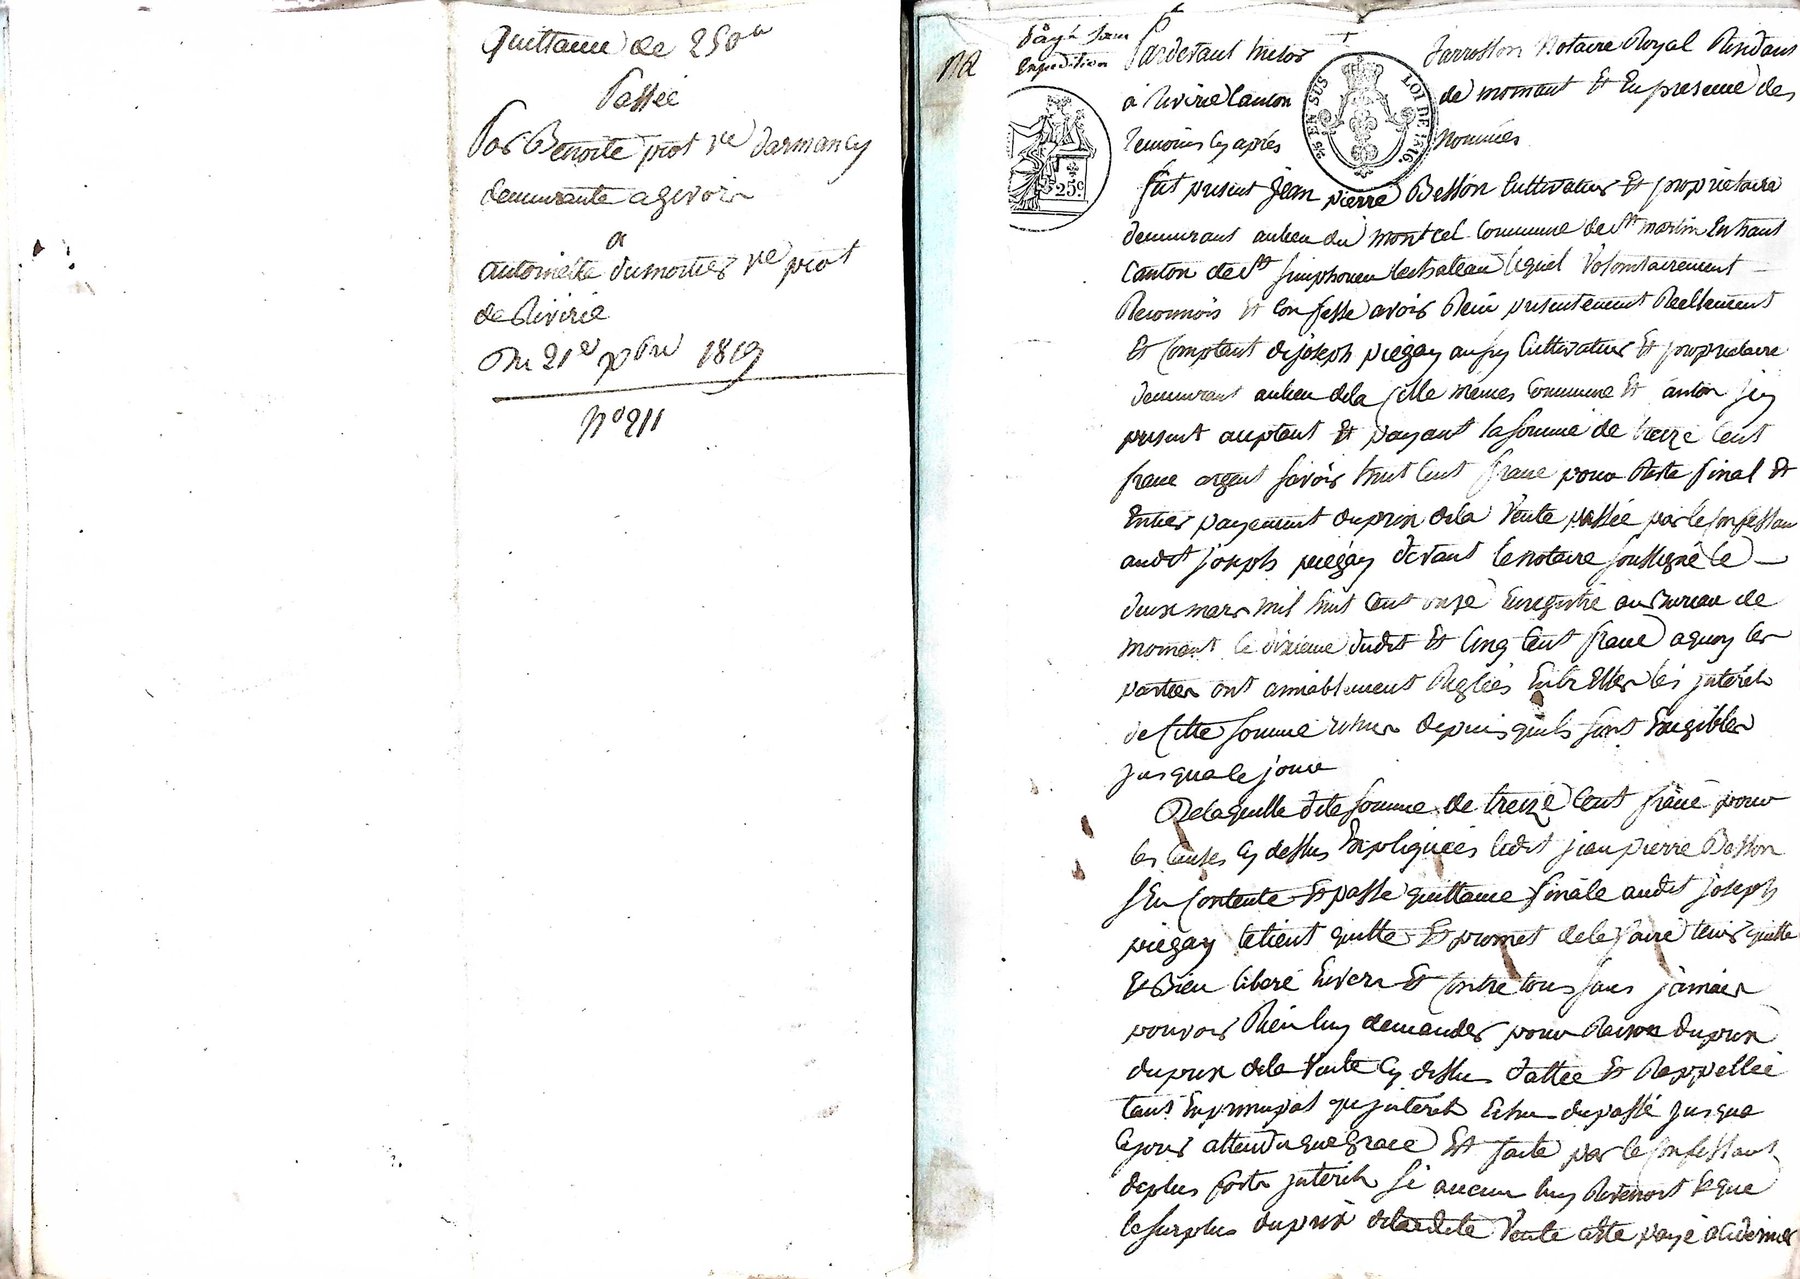 Quittance de 250 ₶
Passée
Par Benoite piot ve Darmancy
demeurante a givoir
a
antoinette dumortier ve piot
de Rivirie
Du 21e xbre 1819
N° 211
Payé pour
Expedition
Pardevant Me
Jarrosson Notaire Royal Residant
à Rivirie Canton
de mornant Et En presence des
temoins cy après
Nommés
25 EN SUS
LOI DE 1816.
25c.
fut present jean pierre Besson Cultivateur Et proprietaire
demeurant aulieu du montcel Commune de St martin En haut
Canton de St Simphorien lechateau lequel volontairement
Reconnois Et Confesse avoir Recu presentement Reellement
Et Comptant de joseph piegay aussy Cultivateur Et proprietaire
demeurant aulieu dela Cille memes Commune Et Canton icy
present aceptant Et payant la somme de treize Cent
franc argent savoir huit Cent franc pour Reste final Et
Entier payement du prix dela Vente passée par le Confessant
audit joseph piegay devant le notaire soussigné le
deux mars mil huit Cent onze Enregistré au Bureau de
mornant le dixieme dudit Et Cinq Cent franc a quoy les
parties ont amiablement Reglées Entr'Elles les jnterêts
de Cette somme Echus depuis quils sont Exigibles
jusqua le jour
Delaquelle dite somme de treize Cent franc pour
les Causes Cy dessus Expliquées ledit jean pierre Besson
sEn Contente Et passe quittance finale audit joseph
piegay le tient quitte Et promet dele faire tenir quitte
Et Bien liberé Envers Et Contre tous sans jamais
pouvoir Rien luy demander pour Raison du prix
du prix dela Vente Cy dessus dattée Et Rappellée
tant En principal que jnterêts Echus du passé jusqua
Ce jour attendu que grace Est faite par le Confessant
de plus forts jnterêts si aucun luy Revenoit Et que
le surplus du prix de ladite Vente a Eté payé a Ce dernier